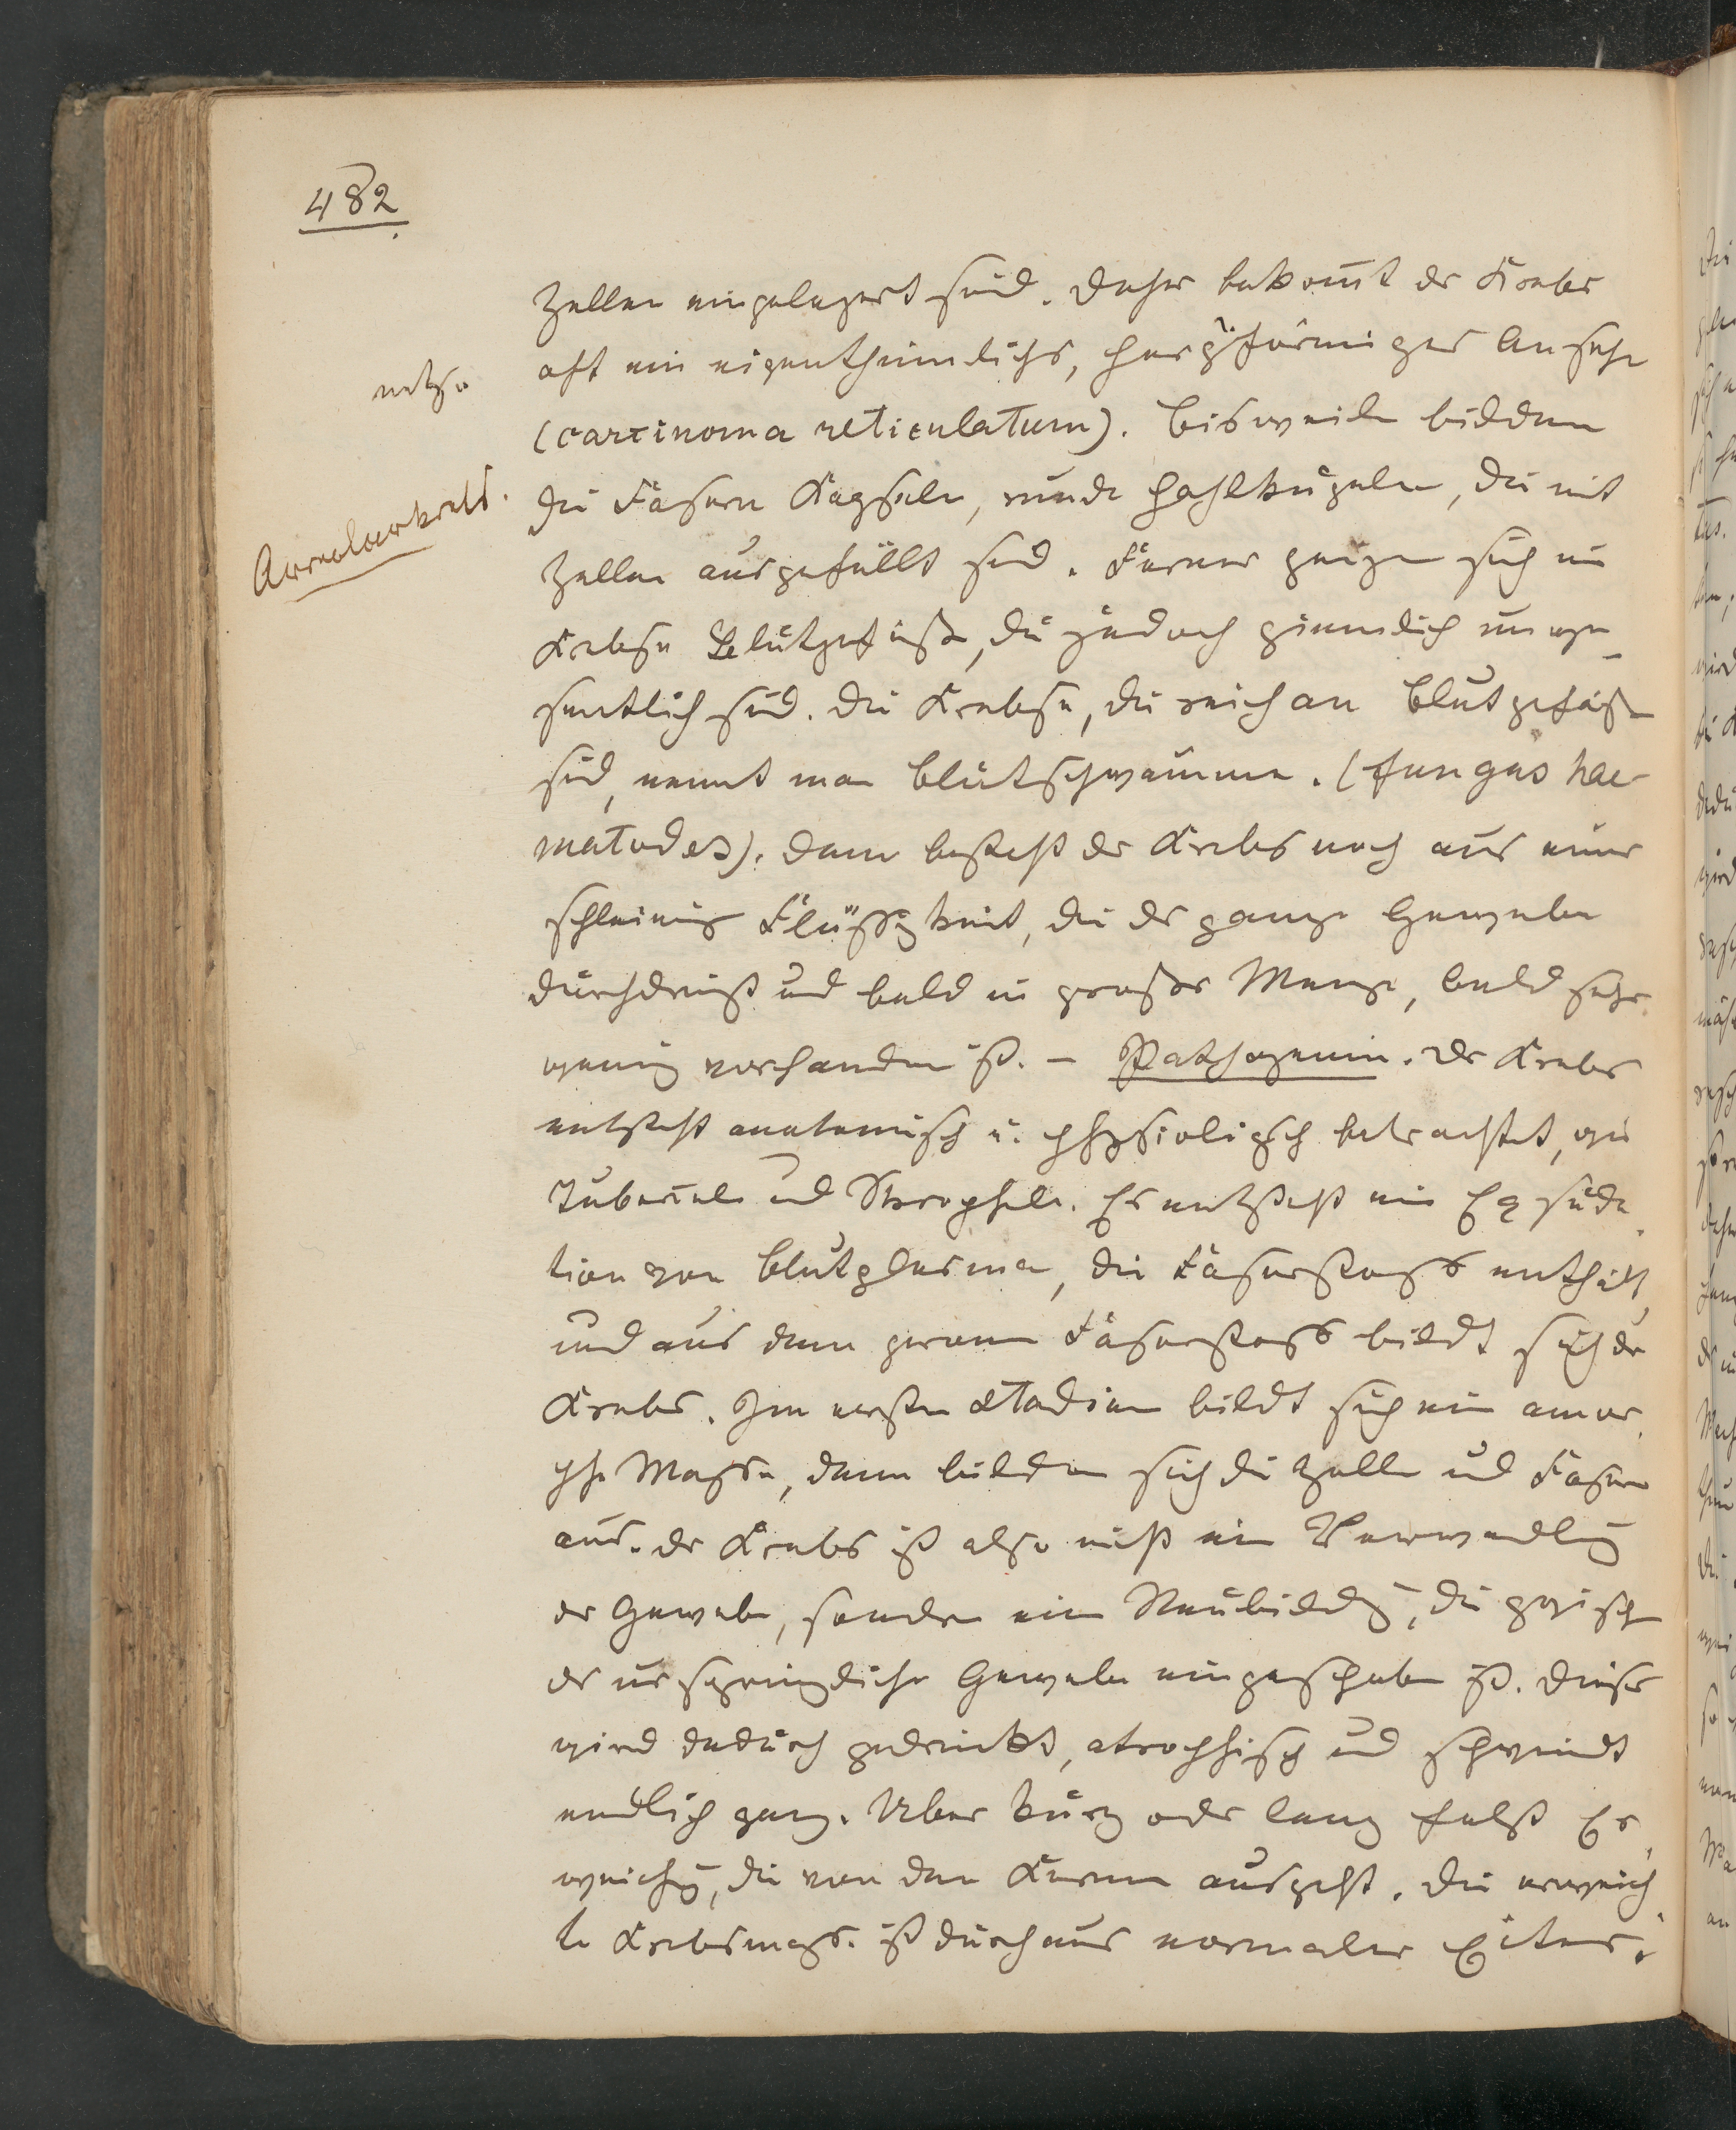 482
Zellen eingelagert sind. Daher bekomt der Krebs
oft ein eigenthümliches, förmiges Ansehn
netz
(carcinoma reticulatum). Bisweilen bilden
die Fasern Kapseln, runde Hohlkugeln, die mit
Areolarkrebs.
Zellen ausgefüllt sind. Ferner zeigen sich im
Krebse Blutgefäße, die jedoch ziemlich unwe-
sentlich sind. Die Krebse, die reich an Blutgefäßen
sind, nennt man Blutschwämme. (fungus hae-
matodes). Dann besteht der Krebs noch aus einer
schleimig Flüssigkeit, die das ganze Gewebe
durchdringt und bald in großer Menge, bald sehr
wenig vorhanden ist. – Pathogenie. Der Krebs
entsteht anatomisch u. physiologisch betrachtet, wie
Tuberkel und Skropheln. Es entsteht ein Exsuda-
tion von Blutplasma, die Faserstoff enthält,
und aus dem Faserstoff bildet sich der
Krebs. Im ersten Stadium bildet sich ein amor-
phe Masse, dann bilden sich die Zellen und Fasern
aus. Der Krebs ist also nicht ein Verwandlung
der Gewebe, sondern ein Neubildung, die zwischen
das ursprüngliche Gewebe eingeschoben ist. Dieses
wird dadurch gedrückt, atrophisch und schwindet
endlich ganz. Über kurz oder lang folgt Er-
weichung, die von dem Kerne ausgeht. Die erweich-
te Krebsmasse ist durchaus normaler Eiter,